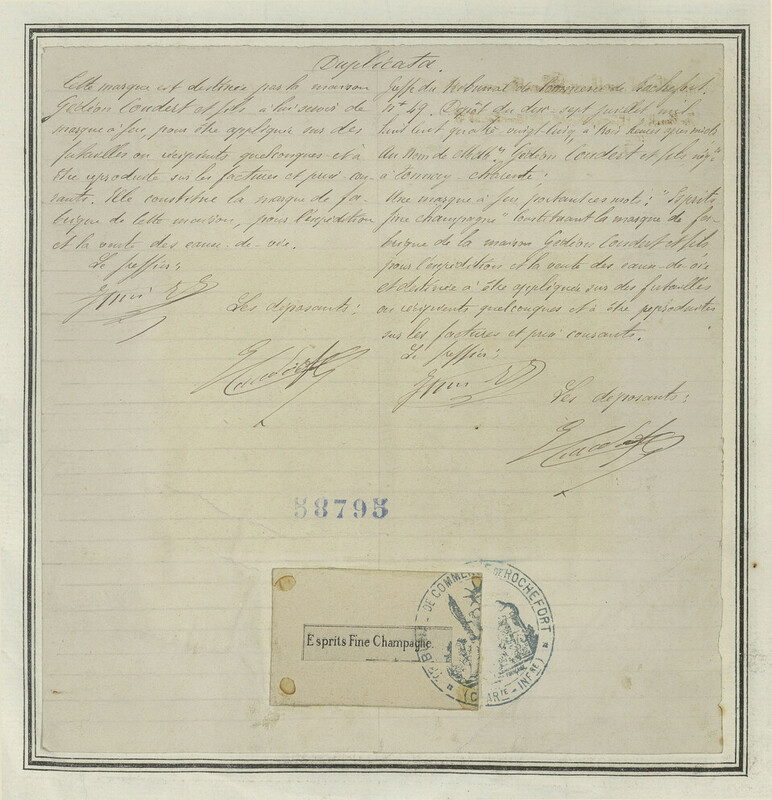 Duplicata.
Cette marque est destinée par la maison
Gédéon Coudert et fils à lui servir de
marque à feu, pour être appliquée sur des
futailles ou récipients quelconques et à
être reproduite sur les factures et prix cou-
rants. Elle constitue la marque de fa-
brique de cette maison, pour l'expédition
et la vente des eaux-de-vie.
Le greffier:
Les déposants:
Greffe du Tribunal de Commerce de Rochefort.
N° 49. Dépôt du dix-sept juillet mil
huit cent quatre vingt cinq, à trois heures après midi
Au Nom de MM. Gédéon Coudert et fils nég.ts
à Tonnay-Charente:
Une marque à feu portant ces mots: "Esprits
fine champagne" constituant la marque de fa-
brique de la maison Gédéon Coudert et fils
pour l'expédition et la vente des eaux-de-vie
et destinée à être appliquée sur des futailles
ou récipients quelconques et à être reproduite
sur les factures et prix courants.
Le greffier:
Les déposants:
58795
Esprits Fine Champagne.
TRIBUNAL DE COMMERCE DE ROCHEFORT
(CHAR.TE - INF.RE)